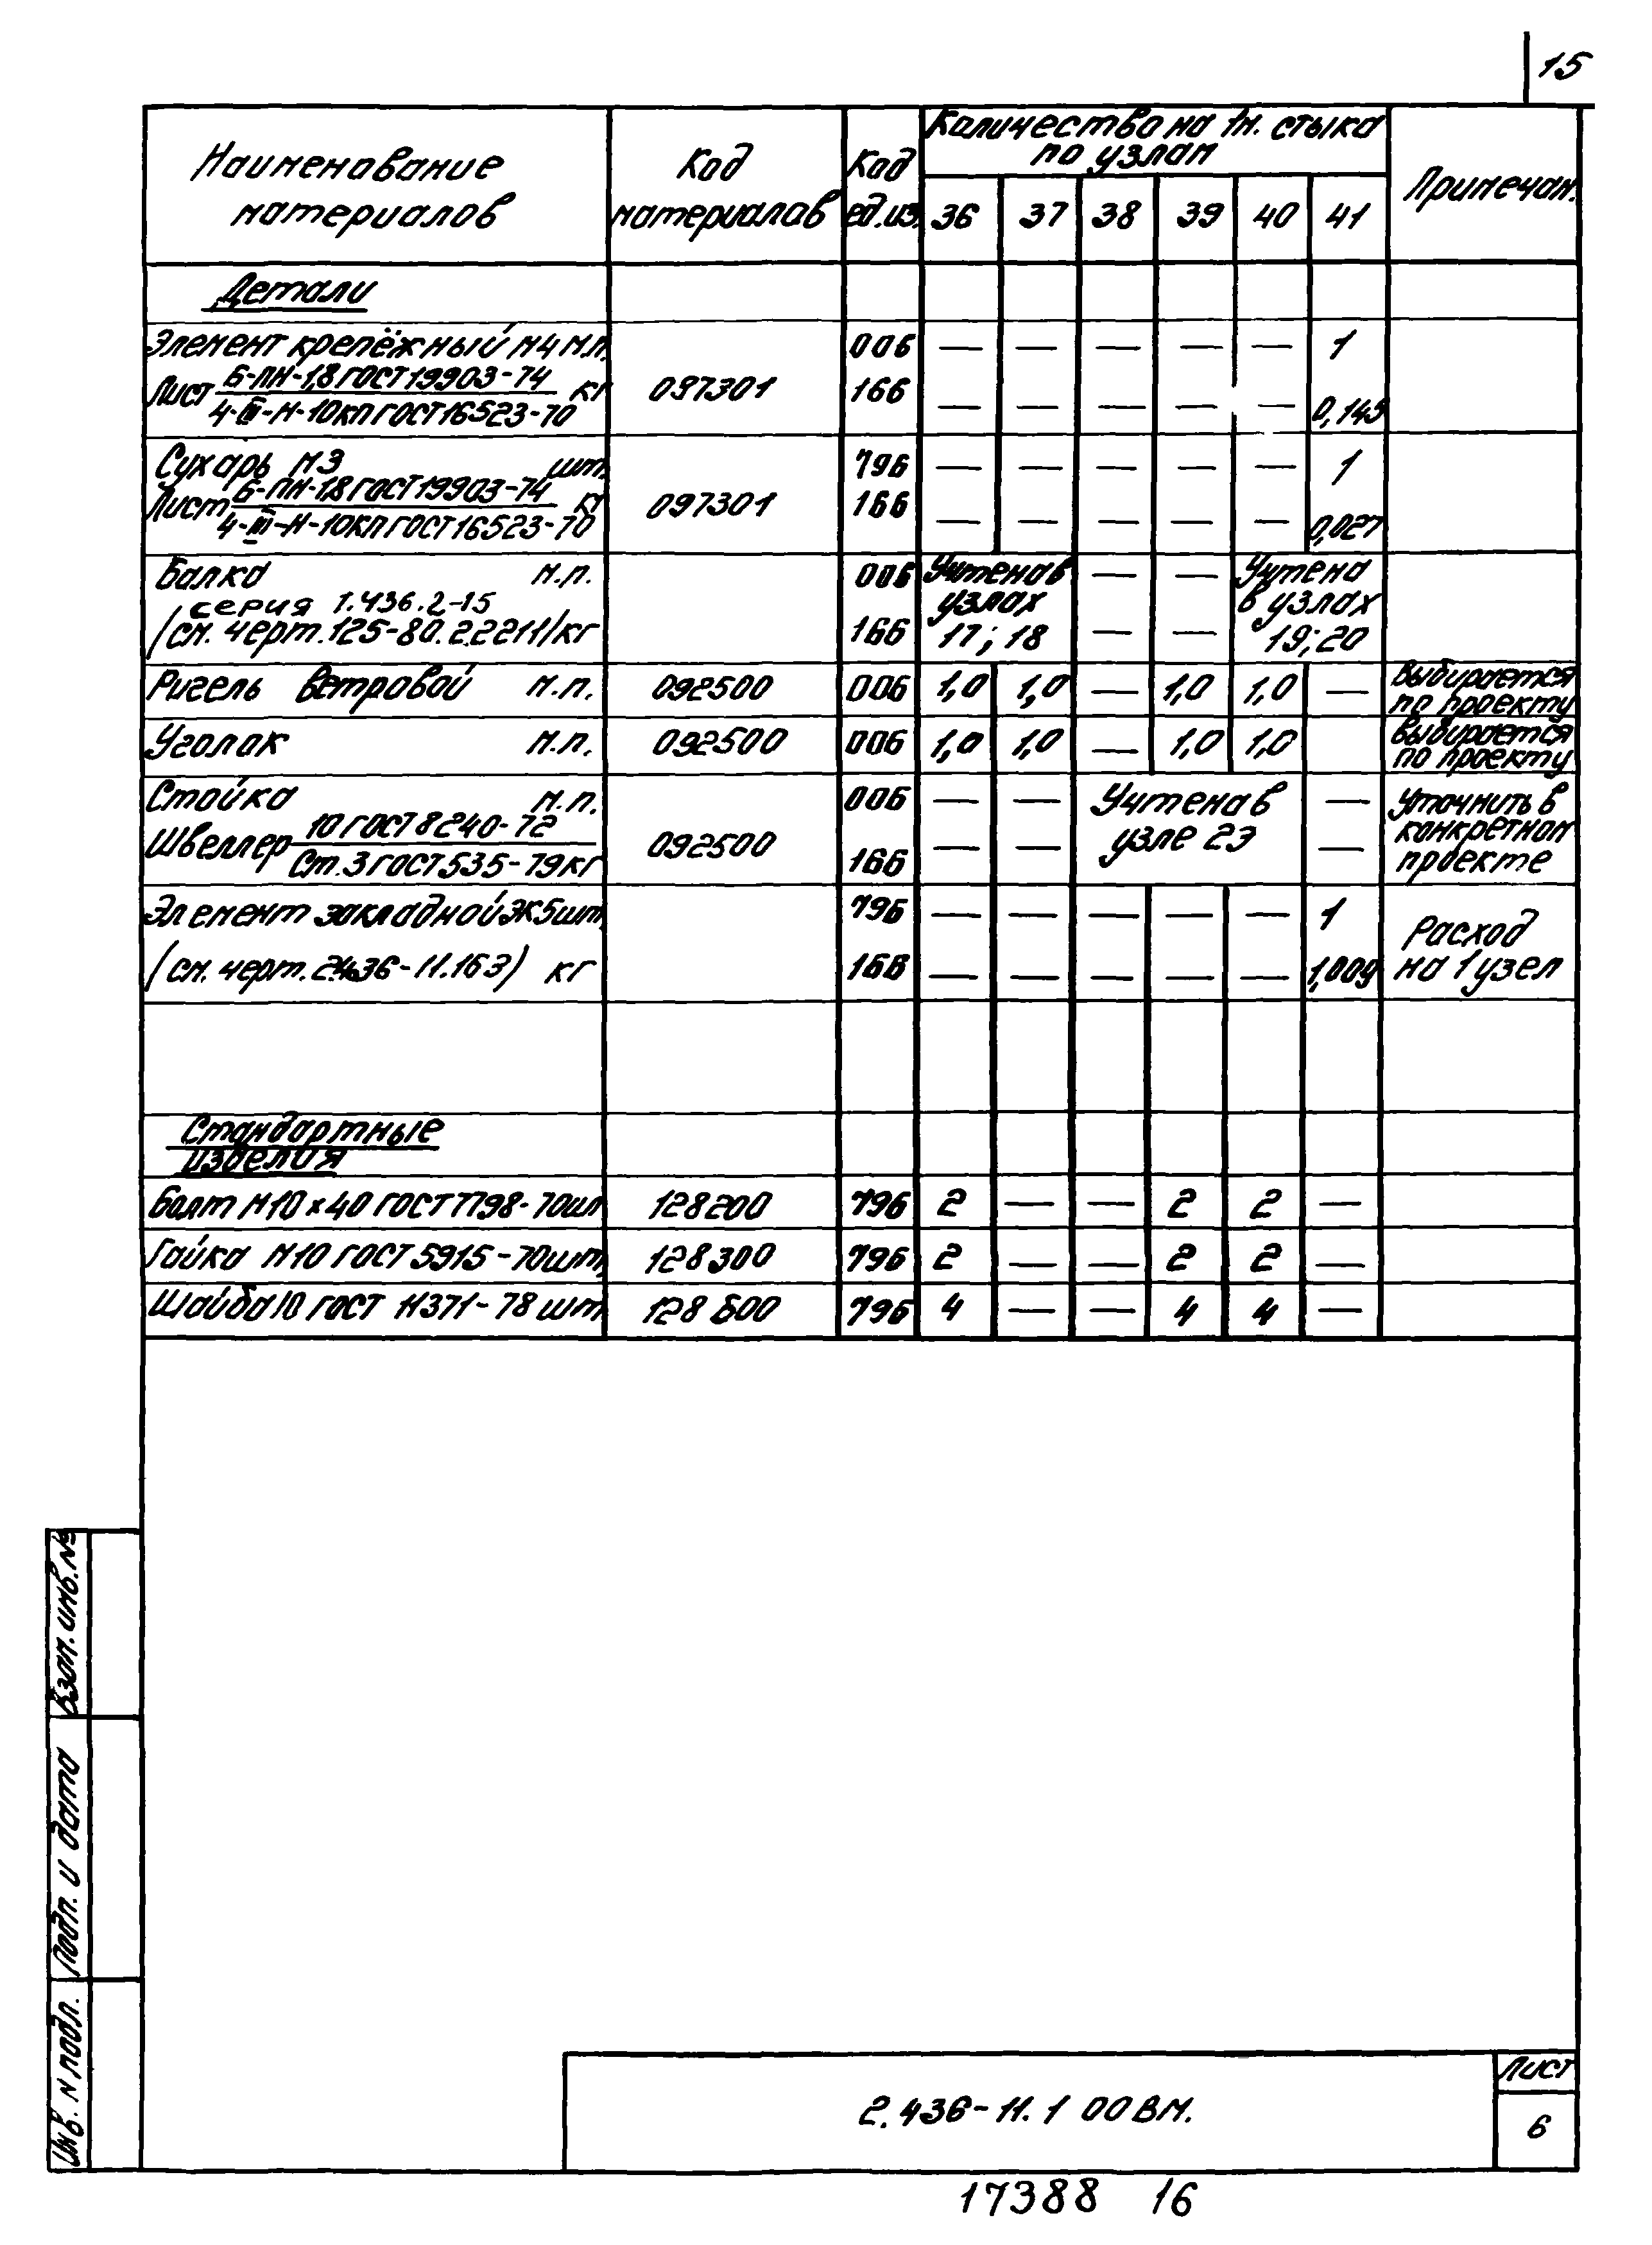 15
Наименование материалов | Код материалов | Код ед.из. | Количество на 1м. стыка по узлам | Примечан.
36 | 37 | 38 | 39 | 40 | 41
Детали
Элемент крепёжный М4 м.п. | 006 | — | — | — | — | — | 1
Лист 6-ПН-1,8 ГОСТ 19903-74 / 4-III-Н-10кп ГОСТ 16523-70 кг | 097301 | 166 | — | — | — | — | — | 0,145
Сухарь М3 шт. | 796 | — | — | — | — | — | 1
Лист Б-ПН-1,8 ГОСТ 19903-74 / 4-III-Н-10кп ГОСТ 16523-70 кг | 097301 | 166 | — | — | — | — | — | 0,027
Балка м.п. | 006 | Учтена в | — | — | Учтена
серия 1.436.2-15 | узлах | в узлах
/см. черт. 125-80.2.2211/ кг | 166 | 17; 18 | — | — | 19; 20
Ригель ветровой м.п. | 092500 | 006 | 1,0 | 1,0 | — | 1,0 | 1,0 | — | Выбирается по проекту
Уголок м.п. | 092500 | 006 | 1,0 | 1,0 | — | 1,0 | 1,0 | Выбирается по проекту
Стойка м.п. | 006 | — | — | Учтена в | — | Уточнить в
Швеллер 10 ГОСТ 8240-72 / Ст.3 ГОСТ 535-79 кг | 092500 | 166 | — | — | узле 23 | — | конкретном проекте
Элемент закладной ЭК5 шт. | 796 | — | — | — | — | — | 1 | Расход
(см. черт. 2.436-11.163) кг | 166 | — | — | — | — | — | 1,009 | на 1 узел
Стандартные
изделия
Болт М10х40 ГОСТ 7798-70 шт | 128200 | 796 | 2 | — | — | 2 | 2 | —
Гайка М10 ГОСТ 5915-70 шт. | 128300 | 796 | 2 | — | — | 2 | 2 | —
Шайба 10 ГОСТ 11371-78 шт | 128600 | 796 | 4 | — | — | 4 | 4 | —
Взам. инв. №
Подп. и дата
Инв. N подл.
2.436-11.1 00ВМ.
Лист
6
17388 16